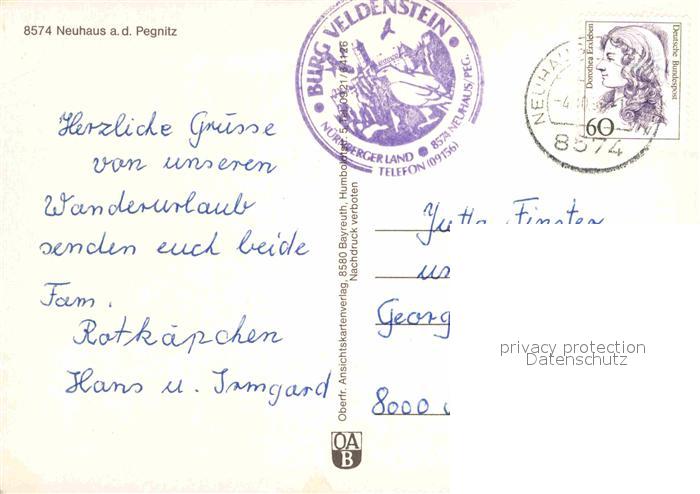 8574 Neuhaus a.d. Pegnitz
Herzliche Grüsse
von unseren
Wanderurlaub
senden euch beide
Fam.
Rotkäpchen
Hans u. Irmgard
BURG VELDENSTEIN
NÜRNBERGER LAND 8574 NEUHAUS/PEG.
TELEFON (09156)
Oberfr. Ansichtskartenverlag, 8580 Bayreuth, Humboldtstr. 5, Tel. 0921/64126
Nachdruck verboten
OA
B
NEUHAUS
8574
Dorothea Erxleben
Deutsche Bundespost
60
Jutta Finster
Georg
8000
privacy protection
Datenschutz